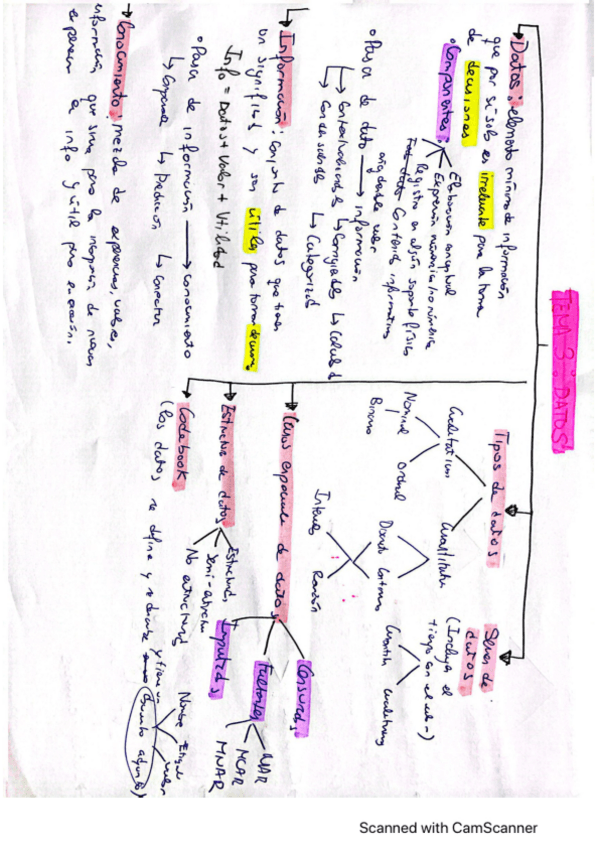 TEMA 3: DATOS
Datos: elemento mínimo de información
que por si solo es irrelevante para la toma
de decisiones
• Componentes:
Elaboración conceptual
Expresión numérica / no numérica
Registro en algún soporte físico
Contenido informativo
• Pasa de dato → información
añadiendo valor
↳ Contextualizado ↳ Corregido ↳ Calculado
↳ Condensado ↳ Categorizado
Información: conjunto de datos que tienen
un significado y son útiles para tomar decisiones
Info = Datos + Valor + Utilidad
• Pasa de información → conocimiento
↳ Comparar ↳ Predicción ↳ Conectar
Conocimiento: mezcla de experiencias, valores,
información que sirve para la incorporación de nuevas
experiencias e info y útil para acción.
Tipos de datos:
Cualitativos
Cuantitativos
Nominal
Ordinal
Binario
Discreto
Continuo
Intervalo
Razón
Series de
datos
(Incluye el
tiempo en el valor)
Cuantitativas
Cualitativas
Casos especiales de datos
Censurados
Faltantes
MAR
MCAR
MNAR
Imputados
Estructura de datos
Estructurados
Semi-estructurados
No estructurados
Codebook
(los datos se define y se describe y tienen
Nombre
Etiqueta
Valor
Scanned with CamScanner